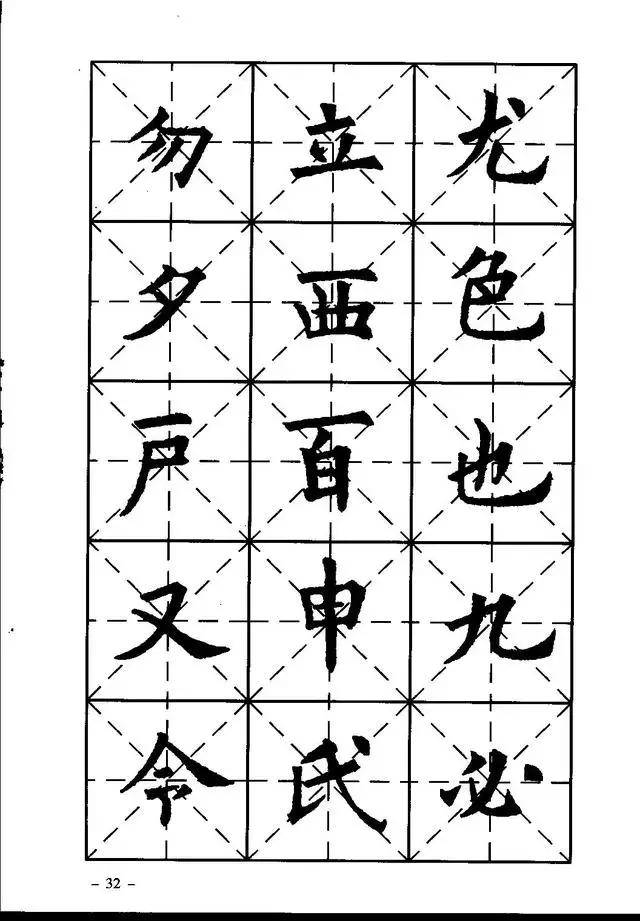 尤色也九必
立西百申氏
勿夕戸又令
- 32 -